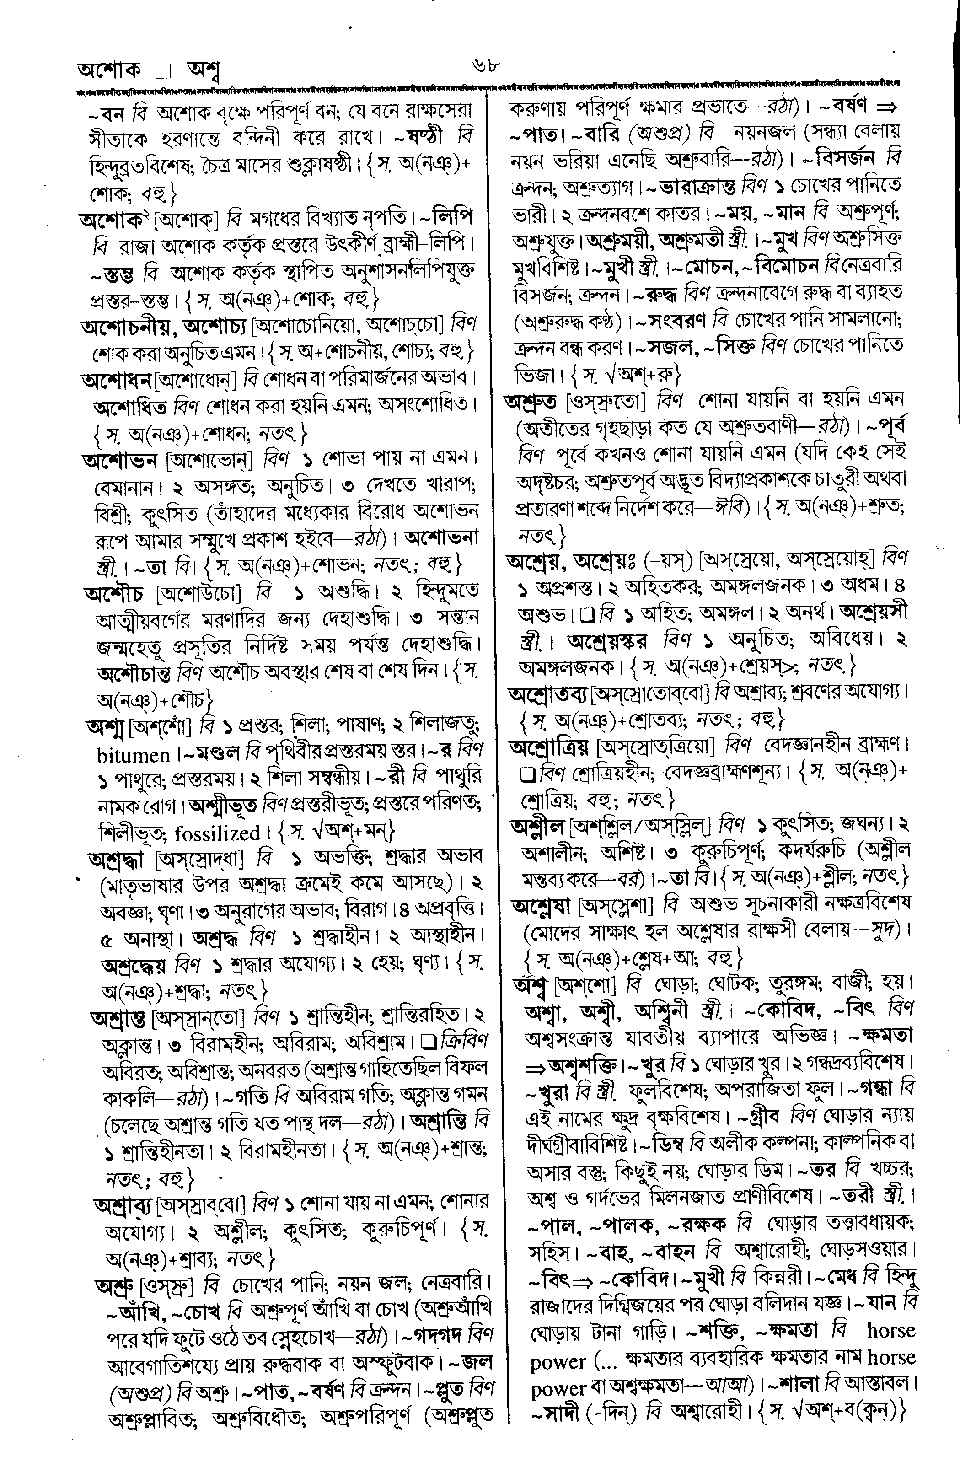 অশোক _। অশ্ব
৬৮
~বন বি অশোক বৃক্ষে পরিপূর্ণ বন; যে বনে রাক্ষসেরা
সীতাকে হরণান্তে বন্দিনী করে রাখে। ~ষষ্ঠী বি
হিন্দুব্রতবিশেষ; চৈত্র মাসের শুক্লাষষ্ঠী। {স. অ(নঞ্)+
শোক; বহু}
অশোক২ [অশোক্] বি মগধের বিখ্যাত নৃপতি। ~লিপি
বি রাজা অশোক কর্তৃক প্রস্তরে উৎকীর্ণ ব্রাহ্মী-লিপি।
~স্তম্ভ বি অশোক কর্তৃক স্থাপিত অনুশাসনলিপিযুক্ত
প্রস্তর-স্তম্ভ। {স. অ(নঞ্)+শোক; বহু}
অশোচনীয়, অশোচ্য [অশোচোনিয়ো, অশোচ্‌চো] বিণ
শোক করা অনুচিত এমন। {স. অ+শোচনীয়, শোচ্য; বহু}
অশোধন [অশোধোন্] বি শোধন বা পরিমার্জনের অভাব।
অশোধিত বিণ শোধন করা হয়নি এমন; অসংশোধিত।
{স. অ(নঞ্)+শোধন; নতৎ}
অশোভন [অশোভোন্] বিণ ১ শোভা পায় না এমন।
বেমানান। ২ অসঙ্গত; অনুচিত। ৩ দেখতে খারাপ;
বিশ্রী; কুৎসিত (তাঁহাদের মধ্যেকার বিরোধ অশোভন
রূপে আমার সম্মুখে প্রকাশ হইবে—রঠা)। অশোভনা
স্ত্রী.। ~তা বি। {স. অ(নঞ্)+শোভন; নতৎ; বহু}
অশৌচ [অশোউচো] বি ১ অশুদ্ধি। ২ হিন্দুমতে
আত্মীয়বর্গের মরণাদির জন্য দেহাশুদ্ধি। ৩ সন্তান
জন্মহেতু প্রসূতির নির্দিষ্ট সময় পর্যন্ত দেহাশুদ্ধি।
অশৌচান্ত বিণ অশৌচ অবস্থার শেষ বা শেষ দিন। {স.
অ(নঞ্)+শৌচ}
অশ্ম [অশ্‌শোঁ] বি ১ প্রস্তর; শিলা; পাষাণ; ২ শিলাজতু;
bitumen। ~মণ্ডল বি পৃথিবীর প্রস্তরময় স্তর। ~র বিণ
১ পাথুরে; প্রস্তরময়। ২ শিলা সম্বন্ধীয়। ~রী বি পাথুরি
নামক রোগ। অশ্মীভূত বিণ প্রস্তরীভূত; প্রস্তরে পরিণত;
শিলীভূত; fossilized। {স. √অশ্+মন্}
অশ্রদ্ধা [অস্‌স্রোদ্ধা] বি ১ অভক্তি; শ্রদ্ধার অভাব
(মাতৃভাষার উপর অশ্রদ্ধা ক্রমেই কমে আসছে)। ২
অবজ্ঞা; ঘৃণা। ৩ অনুরাগের অভাব; বিরাগ। ৪ অপ্রবৃত্তি।
৫ অনাস্থা। অশ্রদ্ধ বিণ ১ শ্রদ্ধাহীন। ২ আস্থাহীন।
অশ্রদ্ধেয় বিণ ১ শ্রদ্ধার অযোগ্য। ২ হেয়; ঘৃণ্য। {স.
অ(নঞ্)+শ্রদ্ধা; নতৎ}
অশ্রান্ত [অস্‌স্রান্‌তো] বিণ ১ শ্রান্তিহীন; শ্রান্তিরহিত। ২
অক্লান্ত। ৩ বিরামহীন; অবিরাম; অবিশ্রাম। ❑ ক্রিবিণ
অবিরত; অবিশ্রান্ত; অনবরত (অশ্রান্ত গাহিতেছিল বিফল
কাকলি—রঠা)। ~গতি বি অবিরাম গতি; অক্লান্ত গমন
(চলেছে অশ্রান্ত গতি যত পান্থ দল—রঠা)। অশ্রান্তি বি
১ শ্রান্তিহীনতা। ২ বিরামহীনতা। {স. অ(নঞ্)+শ্রান্ত;
নতৎ; বহু}
অশ্রাব্য [অস্‌স্রাব্‌বো] বিণ ১ শোনা যায় না এমন; শোনার
অযোগ্য। ২ অশ্লীল; কুৎসিত; কুরুচিপূর্ণ। {স.
অ(নঞ্)+শ্রাব্য; নতৎ}
অশ্রু [ওস্‌স্রু] বি চোখের পানি; নয়ন জল; নেত্রবারি।
~আঁখি, ~চোখ বি অশ্রুপূর্ণ আঁখি বা চোখ (অশ্রুআঁখি
পরে যদি ফুটে ওঠে তব স্নেহচোখ—রঠা)। ~গদগদ বিণ
আবেগাতিশয্যে প্রায় রুদ্ধবাক বা অস্ফুটবাক। ~জল
(অশুপ্র) বি অশ্রু। ~পাত, ~বর্ষণ বি ক্রন্দন। ~প্লুত বিণ
অশ্রুপ্লাবিত; অশ্রুবিধৌত; অশ্রুপরিপূর্ণ (অশ্রুপ্লুত
করুণায় পরিপূর্ণ ক্ষমার প্রভাতে—রঠা)। ~বর্ষণ ⇒
~পাত। ~বারি (অশুপ্র) বি নয়নজল (সন্ধ্যা বেলায়
নয়ন ভরিয়া এনেছি অশ্রুবারি—রঠা)। ~বিসর্জন বি
ক্রন্দন; অশ্রুত্যাগ। ~ভারাক্রান্ত বিণ ১ চোখের পানিতে
ভারী। ২ ক্রন্দনবশে কাতর। ~ময়, ~মান বি অশ্রুপূর্ণ;
অশ্রুযুক্ত। অশ্রুময়ী, অশ্রুমতী স্ত্রী.। ~মুখ বিণ অশ্রুসিক্ত
মুখবিশিষ্ট। ~মুখী স্ত্রী.। ~মোচন, ~বিমোচন বি নেত্রবারি
বিসর্জন; ক্রন্দন। ~রুদ্ধ বিণ ক্রন্দনাবেগে রুদ্ধ বা ব্যাহত
(অশ্রুরুদ্ধ কণ্ঠ)। ~সংবরণ বি চোখের পানি সামলানো;
ক্রন্দন বন্ধ করণ। ~সজল, ~সিক্ত বিণ চোখের পানিতে
ভিজা। {স. √অশ্+রু}
অশ্রুত [ওস্‌স্রুতো] বিণ শোনা যায়নি বা হয়নি এমন
(অতীতের গৃহছাড়া কত যে অশ্রুতবাণী—রঠা)। ~পূর্ব
বিণ পূর্বে কখনও শোনা যায়নি এমন (যদি কেহ সেই
অদৃষ্টচর; অশ্রুতপূর্ব অদ্ভূত বিদ্যাপ্রকাশকে চাতুরী অথবা
প্রতারণা শব্দে নির্দেশ করে—ঈবি)। {স. অ(নঞ্)+শ্রুত;
নতৎ}
অশ্রেয়, অশ্রেয়ঃ (-য়স) [অসস্রেয়ো, অসস্রেয়োহ্] বিণ
১ অপ্রশস্ত। ২ অহিতকর; অমঙ্গলজনক। ৩ অধম। ৪
অশুভ। ❑ বি ১ অহিত; অমঙ্গল। ২ অনর্থ। অশ্রেয়সী
স্ত্রী.। অশ্রেয়স্কর বিণ ১ অনুচিত; অবিধেয়। ২
অমঙ্গলজনক। {স. অ(নঞ্)+শ্রেয়স্>; নতৎ}
অশ্রোতব্য [অস্‌স্রোতোব্‌বো] বি অশ্রাব্য; শ্রবণের অযোগ্য।
{স. অ(নঞ্)+শ্রোতব্য; নতৎ; বহু}
অশ্রোত্রিয় [অস্‌স্রোত্‌ত্রিয়ো] বিণ বেদজ্ঞানহীন ব্রাহ্মণ।
❑ বিণ শ্রোত্রিয়হীন; বেদজ্ঞব্রাহ্মণশূন্য। {স. অ(নঞ্)+
শ্রোত্রিয়; বহু; নতৎ}
অশ্লীল [অশ্‌শ্লিল/অস্‌স্লিল্] বিণ ১ কুৎসিত; জঘন্য। ২
অশালীন; অশিষ্ট। ৩ কুরুচিপূর্ণ; কদর্যরুচি (অশ্লীল
মন্তব্য করে—বর)। ~তা বি। {স. অ(নঞ্)+শ্লীল; নতৎ}
অশ্লেষা [অস্‌স্লেশা] বি অশুভ সূচনাকারী নক্ষত্রবিশেষ
(মোদের সাক্ষাৎ হল অশ্লেষার রাক্ষসী বেলায়—সুদ)।
{স. অ(নঞ্)+শ্লেষ+আ; বহু}
অশ্ব [অশ্‌শো] বি ঘোড়া; ঘোটক; তুরঙ্গম; বাজী; হয়।
অশ্বা, অশ্বী, অশ্বিনী স্ত্রী.। ~কোবিদ, ~বিৎ বিণ
অশ্বসংক্রান্ত যাবতীয় ব্যাপারে অভিজ্ঞ। ~ক্ষমতা
⇒অশ্বশক্তি। ~খুর বি ১ ঘোড়ার খুর। ২ গন্ধদ্রব্যবিশেষ।
~খুরা বি স্ত্রী. ফুলবিশেষ; অপরাজিতা ফুল। ~গন্ধা বি
এই নামের ক্ষুদ্র বৃক্ষবিশেষ। ~গ্রীব বিণ ঘোড়ার ন্যায়
দীর্ঘগ্রীবাবিশিষ্ট। ~ডিম্ব বি অলীক কল্পনা; কাল্পনিক বা
অসার বস্তু; কিছুই নয়; ঘোড়াব ডিম। ~তর বি খচ্চর;
অশ্ব ও গার্দভের মিলনজাত প্রাণীবিশেষ। ~তরী স্ত্রী.।
~পাল, ~পালক, ~রক্ষক বি ঘোড়ার তত্ত্বাবধায়ক;
সহিস। ~বাহ, ~বাহন বি অশ্বারোহী; ঘোড়সওয়ার।
~বিৎ⇒ ~কোবিদ। ~মুখী বি কিন্নরী। ~মেধ বি হিন্দু
রাজাদের দিগ্বিজয়ের পর ঘোড়া বলিদান যজ্ঞ। ~যান বি
ঘোড়ায় টানা গাড়ি। ~শক্তি, ~ক্ষমতা বি horse
power (... ক্ষমতার ব্যবহারিক ক্ষমতার নাম horse
power বা অশ্বক্ষমতা—আআ)। ~শালা বি আস্তাবল।
~সাদী (-দিন্) বি অশ্বারোহী। {স. √অশ্+ব(ক্বন্)}